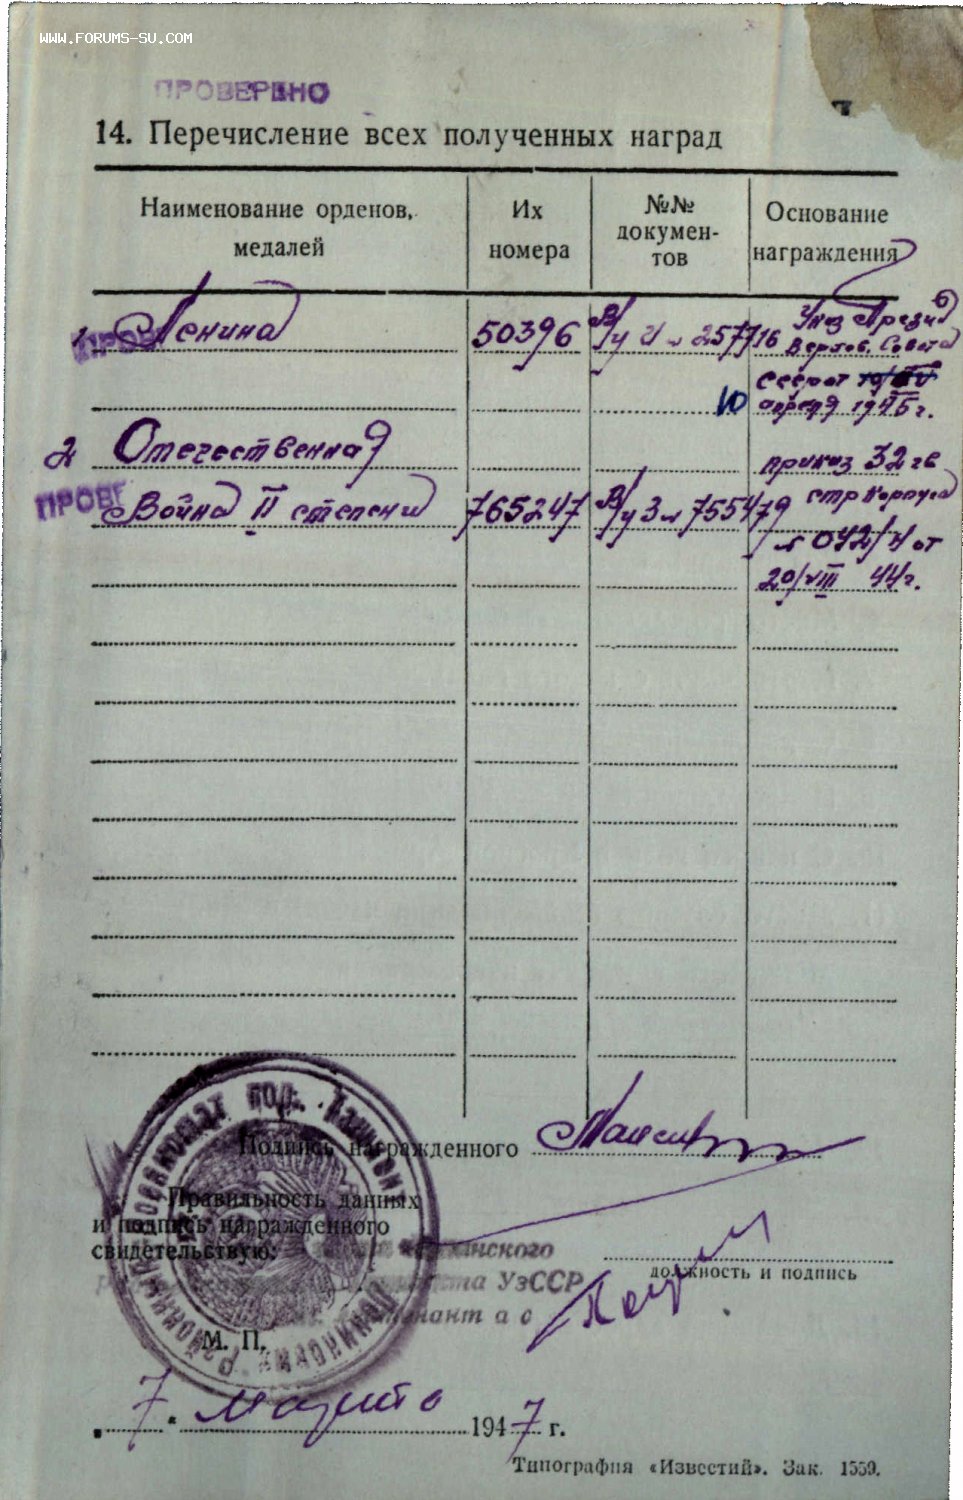 WWW.FORUMS-SU.COM
ПРОВЕРЕНО
14. Перечисление всех полученных наград
Наименование орденов, медалей
Их номера
№№ докумен-тов
Основание награждения
1. Ленина 50396 В/у И № 257716 Указ Презид
Верхов. Совета
ПРОВ
СССР от
10 апреля 1945 г.
2 Отечественная приказ 32 гв
ПРОВЕ
Война II степени 765247 В/у З № 755479 стр Корпуса
№ 042/н от
20/VIII 44 г.
Подпись награжденного
Правильность данных
и подпись награжденного
свидетельствую:
УзССР
должность и подпись
М. П.
7 марта 1947 г.
Типография «Известий». Зак. 1559.